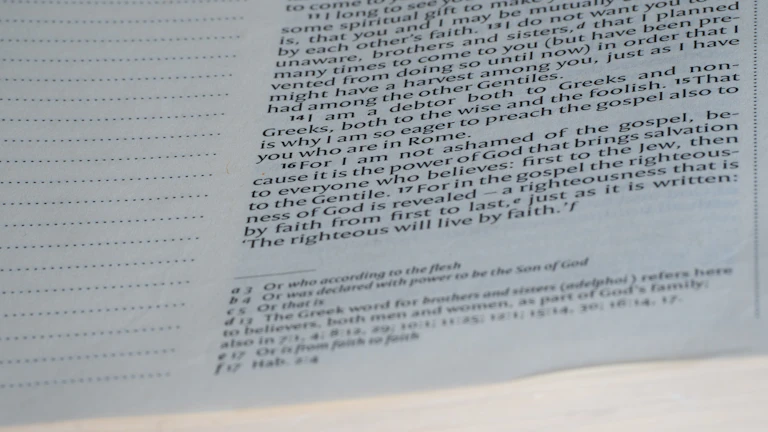 to come to yo
11 I long to see yo
some spiritual gift to make
is, that you and I may be mutually
by each other's faith. 13 I do not want you to
unaware, brothers and sisters,d that I planned
many times to come to you (but have been pre-
vented from doing so until now) in order that I
might have a harvest among you, just as I have
had among the other Gentiles.
14 I am a debtor both to Greeks and non-
Greeks, both to the wise and the foolish. 15 That
is why I am so eager to preach the gospel also to
you who are in Rome.
16 For I am not ashamed of the gospel, be-
cause it is the power of God that brings salvation
to everyone who believes: first to the Jew, then
to the Gentile. 17 For in the gospel the righteous-
ness of God is revealed – a righteousness that is
by faith from first to last,e just as it is written:
'The righteous will live by faith.'f
a 3 Or who according to the flesh
b 4 Or was declared with power to be the Son of God
c 5 Or that is
d 13 The Greek word for brothers and sisters (adelphoi) refers here
to believers, both men and women, as part of God's family;
also in 7:1, 4; 8:12, 29; 10:1; 11:25; 12:1; 15:14, 30; 16:14, 17.
e 17 Or is from faith to faith
f 17 Hab. 2:4